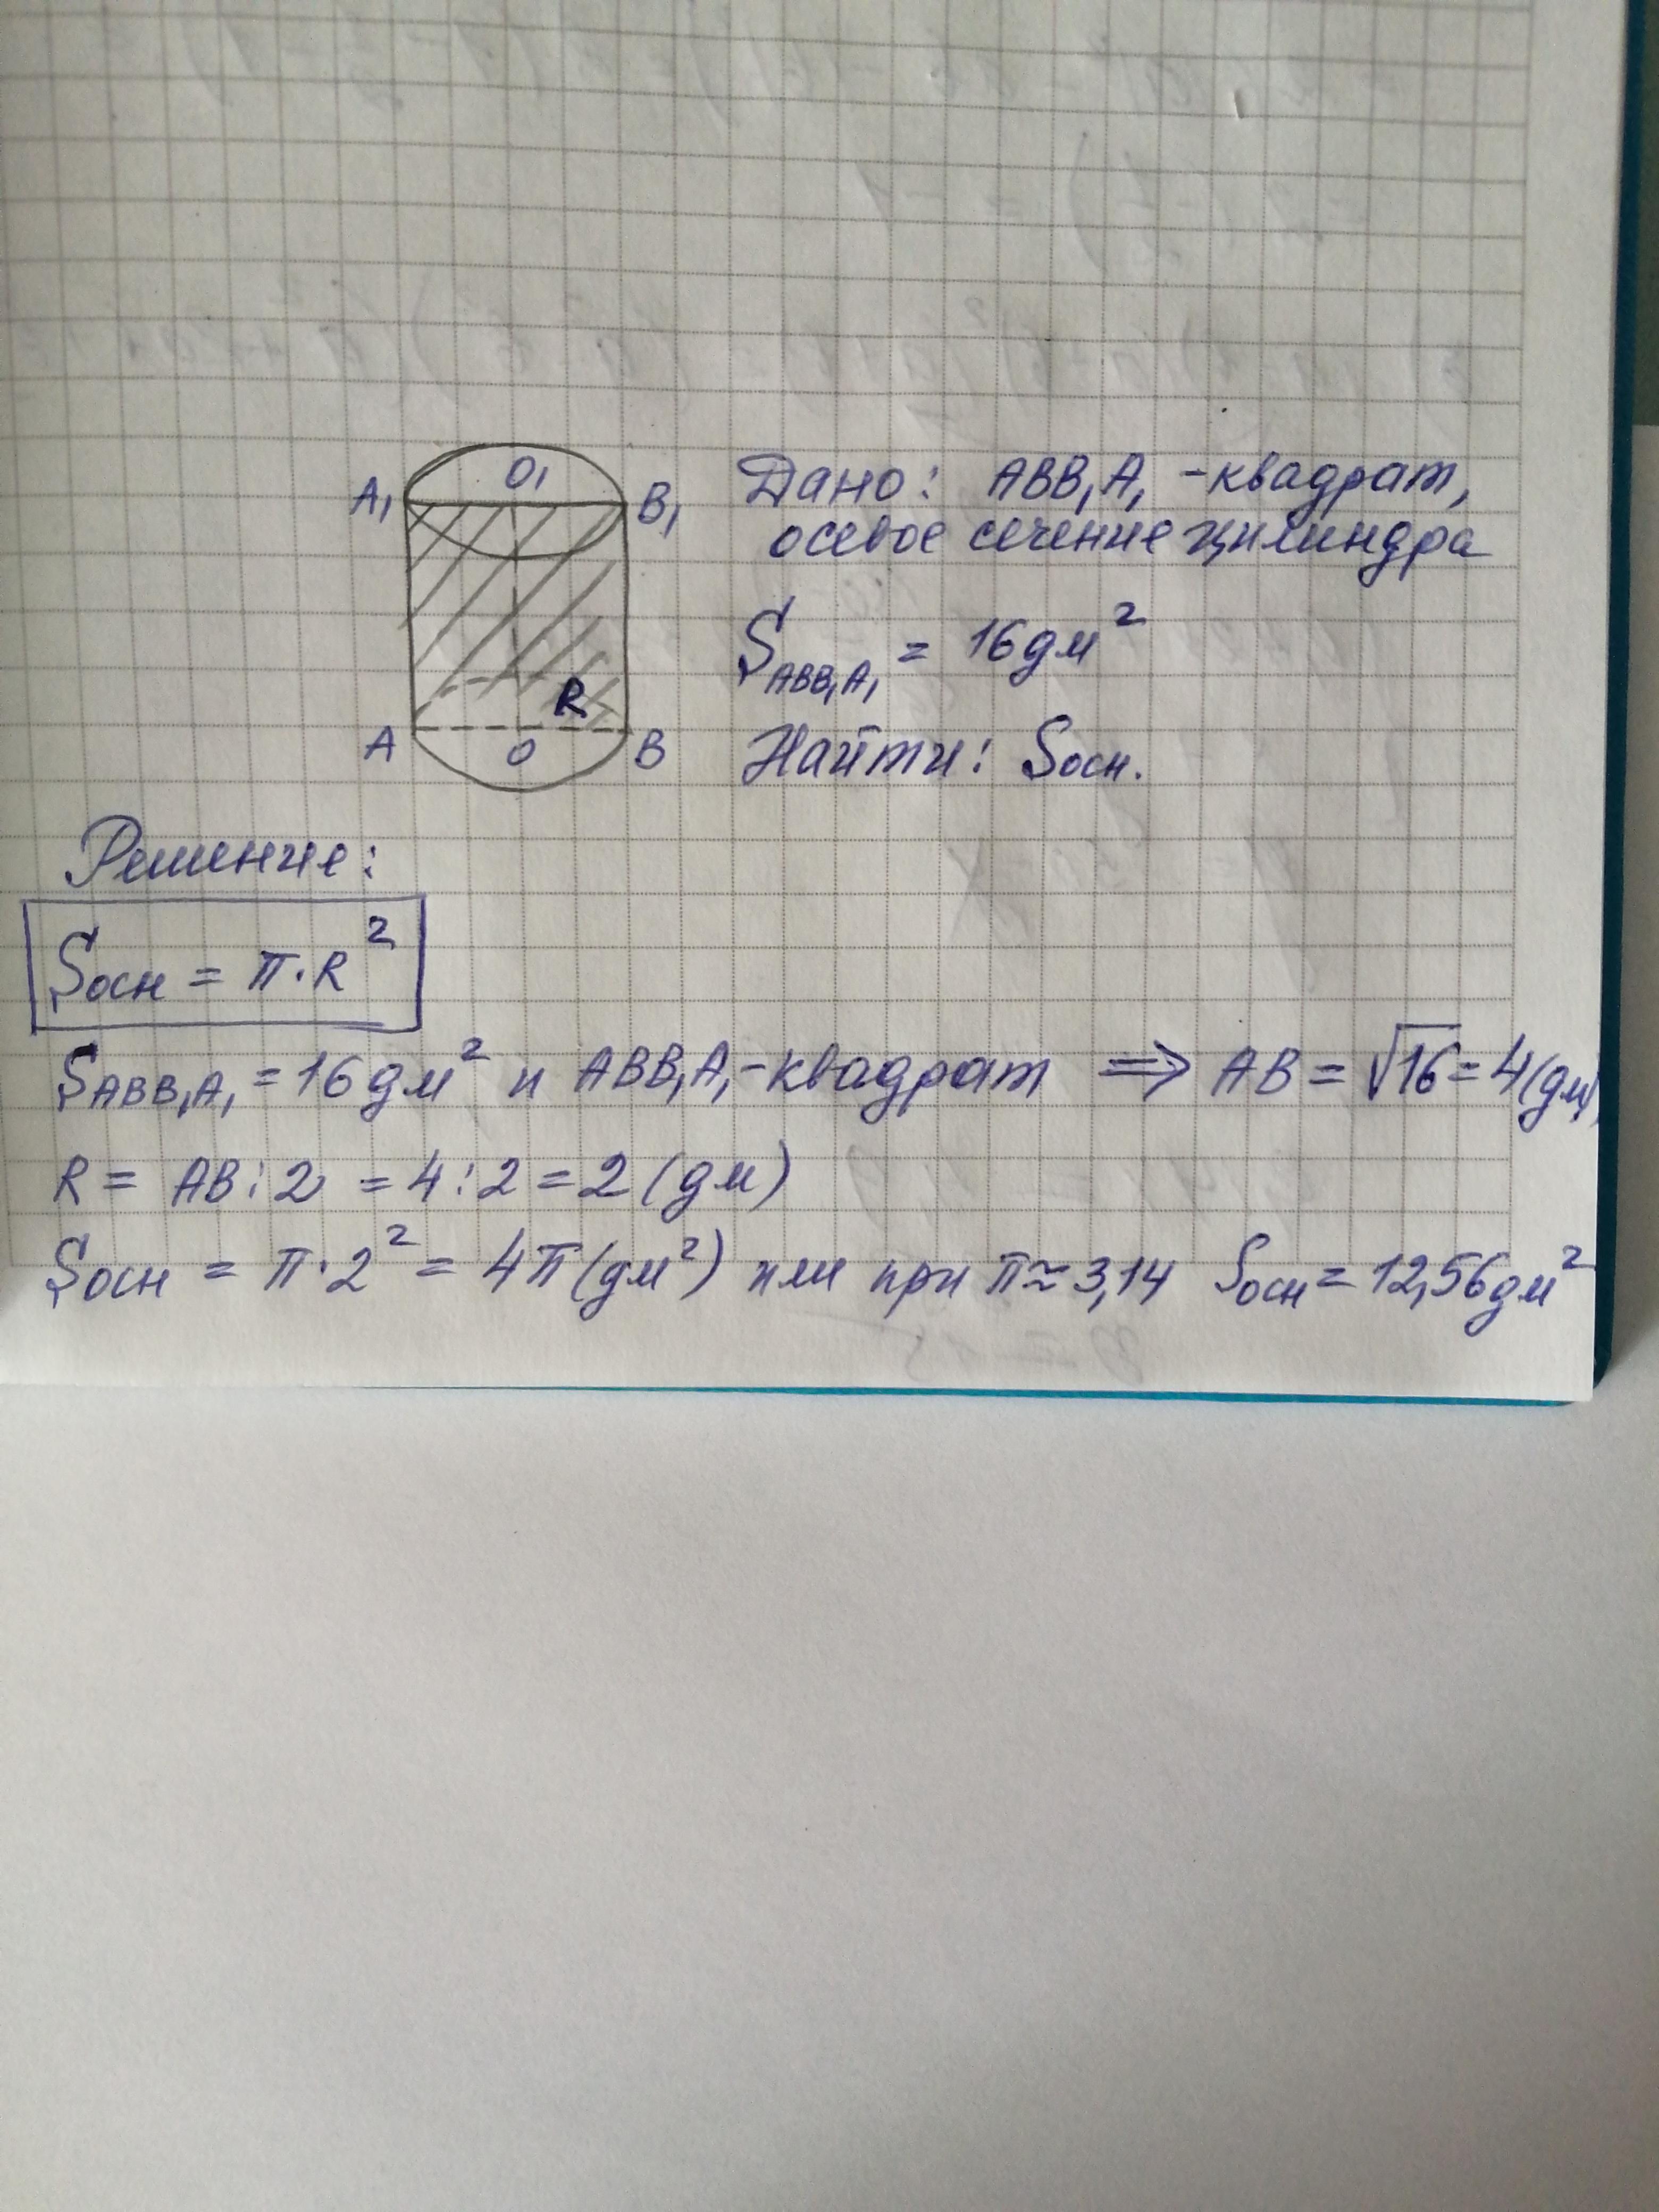 A₁ O₁ B₁ Дано: ABB₁A₁ - квадрат,
осевое сечение цилиндра
S_ABB₁A₁ = 16 дм²
R
A O B Найти: Sосн.
Решение:
Sосн = π·R²
S_ABB₁A₁ = 16 дм² и ABB₁A₁ - квадрат ⇒ AB = √16 = 4 (дм)
R = AB : 2 = 4 : 2 = 2 (дм)
Sосн = π·2² = 4π (дм²) или при π ≈ 3,14 Sосн = 12,56 дм²